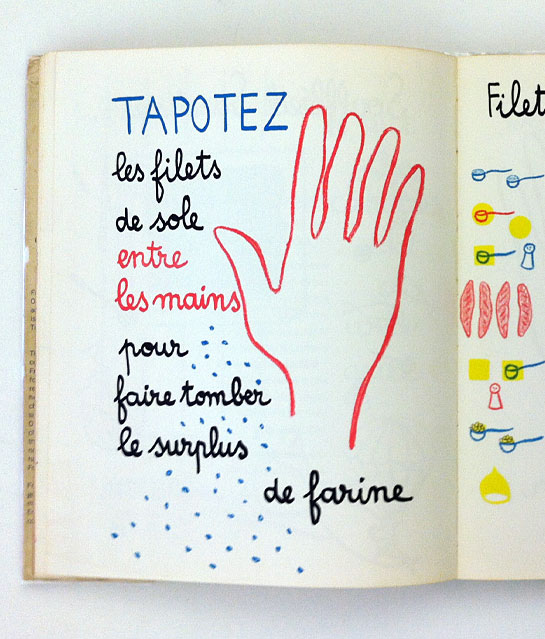 TAPOTEZ
les filets
de sole
entre
les mains
pour
faire tomber
le surplus
de farine
Filet